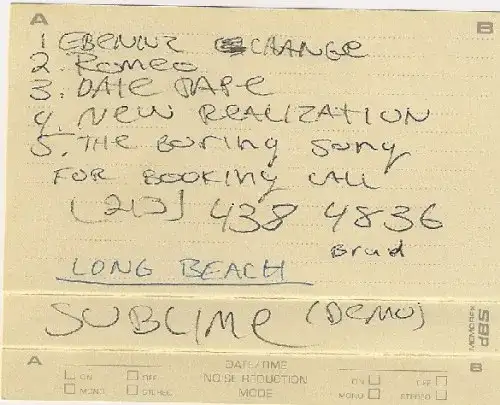 A B
1 EBENNZ EXCHANGE
2. ROMEO
3. DATE RAPE
4. NEW REALIZATION
5. THE BORING SONG
FOR BOOKING CALL
(213) 438 4836
Brad
LONG BEACH
SUBLIME (DEMO)
MEMOREX SBP
A B
DATE/TIME
ON OFF NOISE REDUCTION ON OFF
MONO STEREO MODE MONO STEREO